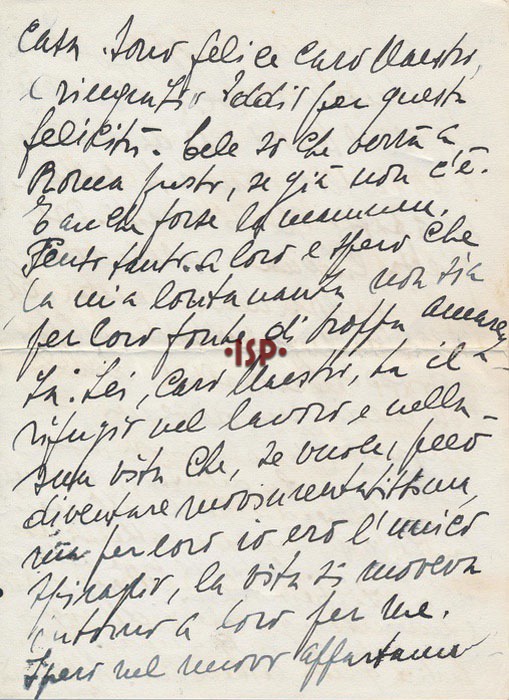 casa. Sono felice caro Maestro,
e ringrazio Iddio per questa
felicità. Cele so che verrà a
Roma presto, se già non c'è.
E anche forse la mamma.
Penso tanto a loro e spero che
la mia lontananza non sia
per loro fonte di troppa amarez-
·ISP·
za. Lei, caro Maestro, ha il
rifugio nel lavoro e nella
sua vita che, se vuole, può
diventare movimentatissima,
ma per loro io ero l'unico
spiraglio, la vita si moveva
intorno a loro per me.
Spero nel nuovo appartame